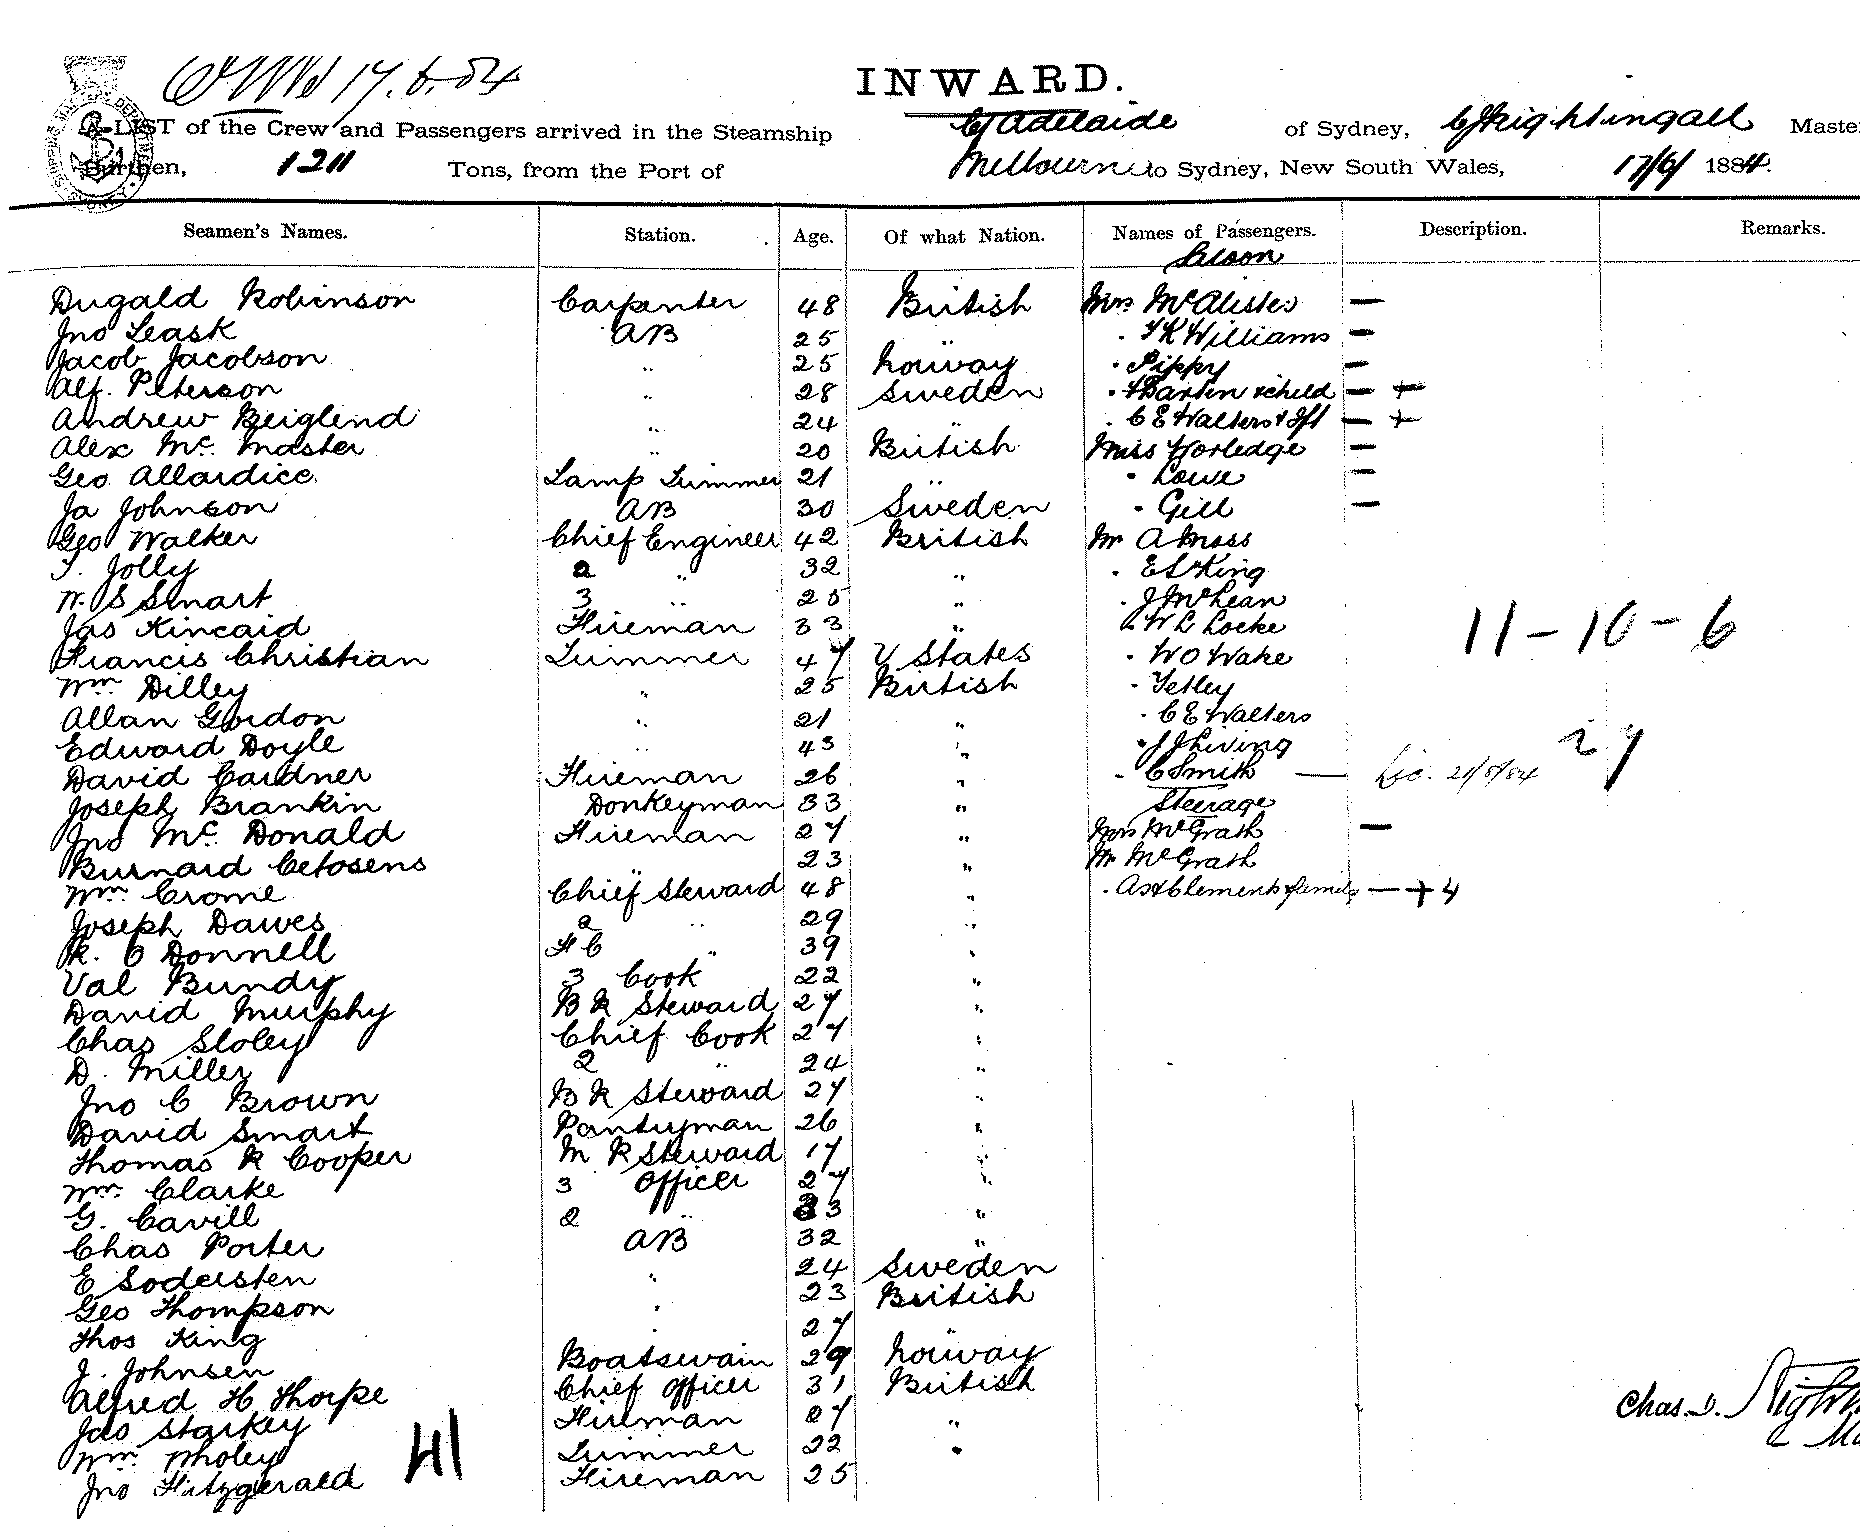 17.6.84
INWARD.
A LIST of the Crew and Passengers arrived in the Steamship Cy Adelaide of Sydney, C Nightingall Maste
Burthen, 1211 Tons, from the Port of Melbourne to Sydney, New South Wales, 17/6/ 1884.
Seamen's Names. Station. Age. Of what Nation. Names of Passengers. Description. Remarks.
Saloon
Dugald Robinson Carpenter 48 British Mrs McAlister —
Jno Leask AB 25 " " Williams —
Jacob Jacobson " 25 Norway " Pippy —
Alf. Peterson " 28 Sweden " Martin & child — +
Andrew Beiglend " 24 " " C E Walters & Ift — +
Alex Mc. Master " 20 British Miss Horledge —
Geo Allardice Lamp Trimmer 21 " " Lowe —
Ja Johnson AB 30 Sweden " Gill —
Geo Walker Chief Engineer 42 British Mr A Moss
T. Jolly 2 " 32 " " E S King
W. S Smart 3 " 25 " " J McLean
Jas Kincaid Fireman 33 " " W L Locke 11-10-6
Francis Christian Trimmer 47 U States " W O Wake
Wm Dilley " 25 British " Tetley
Allan Gordon " 21 " " C E Walters
Edward Doyle " 43 " " J Living 27
David Gardner Fireman 26 " " C Smith — Lic. 21/8/84
Joseph Brankin Donkeyman 33 " Steerage
Jno Mc. Donald Fireman 27 " Mrs McGrath —
Burnard Cetosens " 23 " Mr McGrath
Wm. Crome Chief Steward 48 " " Clement & family — + 4
Joseph Dawes 2 " 29 "
R. O Donnell F C " 39 "
Val Bundy 3 Cook 22 "
David Murphy B R Steward 27 "
Chas Sloley Chief Cook 27 "
D. Miller 2 " 24 "
Jno C Brown B R Steward 27 "
David Smart Pantryman 26 "
Thomas R Cooper M R Steward 17 "
Wm. Clarke 3 Officer 27 "
G. Cavill 2 " 33 "
Chas Porter AB 32 "
E Sodersten " 24 Sweden
Geo Thompson " 23 British
Thos King " 27 "
J. Johnsen Boatswain 29 Norway
Alfred H Thorpe Chief Officer 31 British
Jas Starkey Fireman 27 " Chas. D. Nightin
Wm. Wholey Trimmer 22 " Ma
Jno Fitzgerald Fireman 25
41